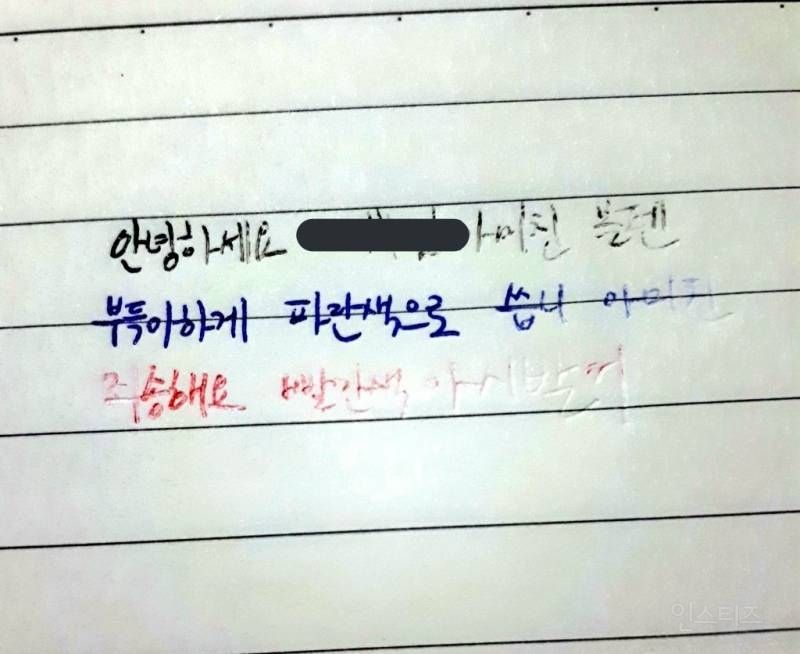 안녕하세요 아미친 볼펜
부득이하게 파란색으로 씁니 아미친
죄송해요 빨간색 아시발여
인스티즈